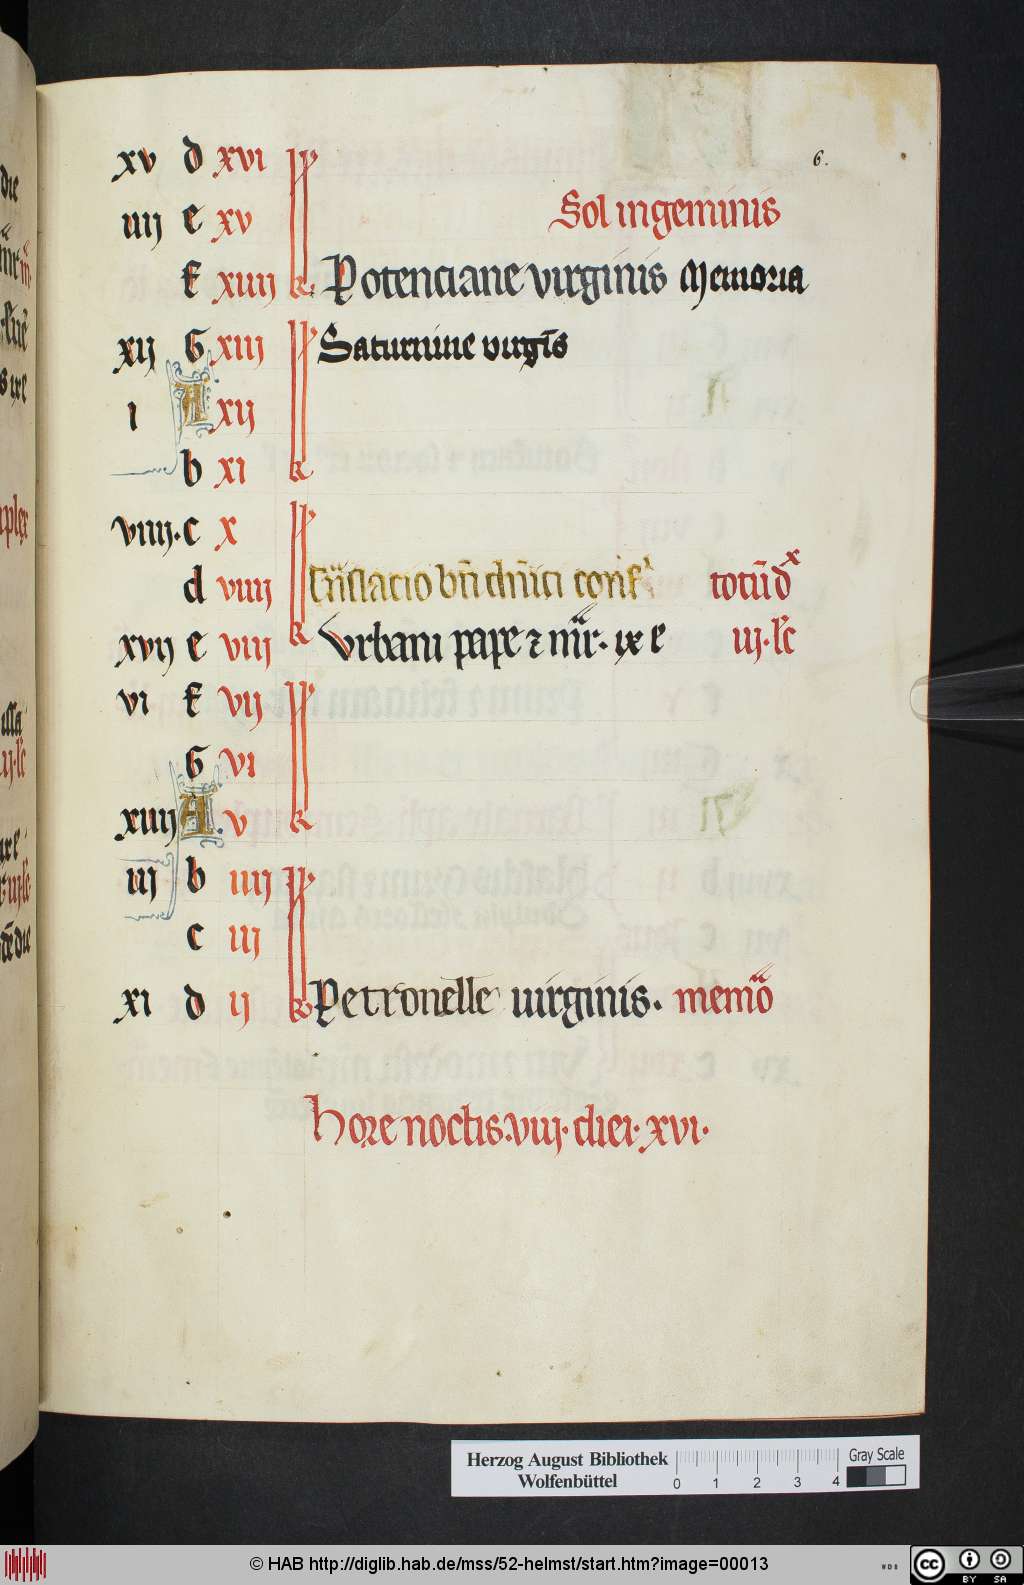 6.
xv d xvi kl
iiij e xv Sol in geminis
f xiiii kl Potenciane virginis Memoria
xij G xiii kl Saturnine virgīs
i A xij
b xi kl
viiii. c x kl
d viiii Trāslacio bt̄i dn̄ici conf totū dx
xvij e viii kl Vrbani pape ⁊ mr̄. ix e iij. lc̄
vi f vij kl
G vi
xiiij A. v kl
iij b iiij kl
c iii
xi d ij kl Petronelle uirginis. memo
hore noctis. viij. diei. xvi.
Herzog August Bibliothek
Wolfenbüttel
0 1 2 3 4
Gray Scale
© HAB http://diglib.hab.de/mss/52-helmst/start.htm?image=00013
WDB
cc BY SA